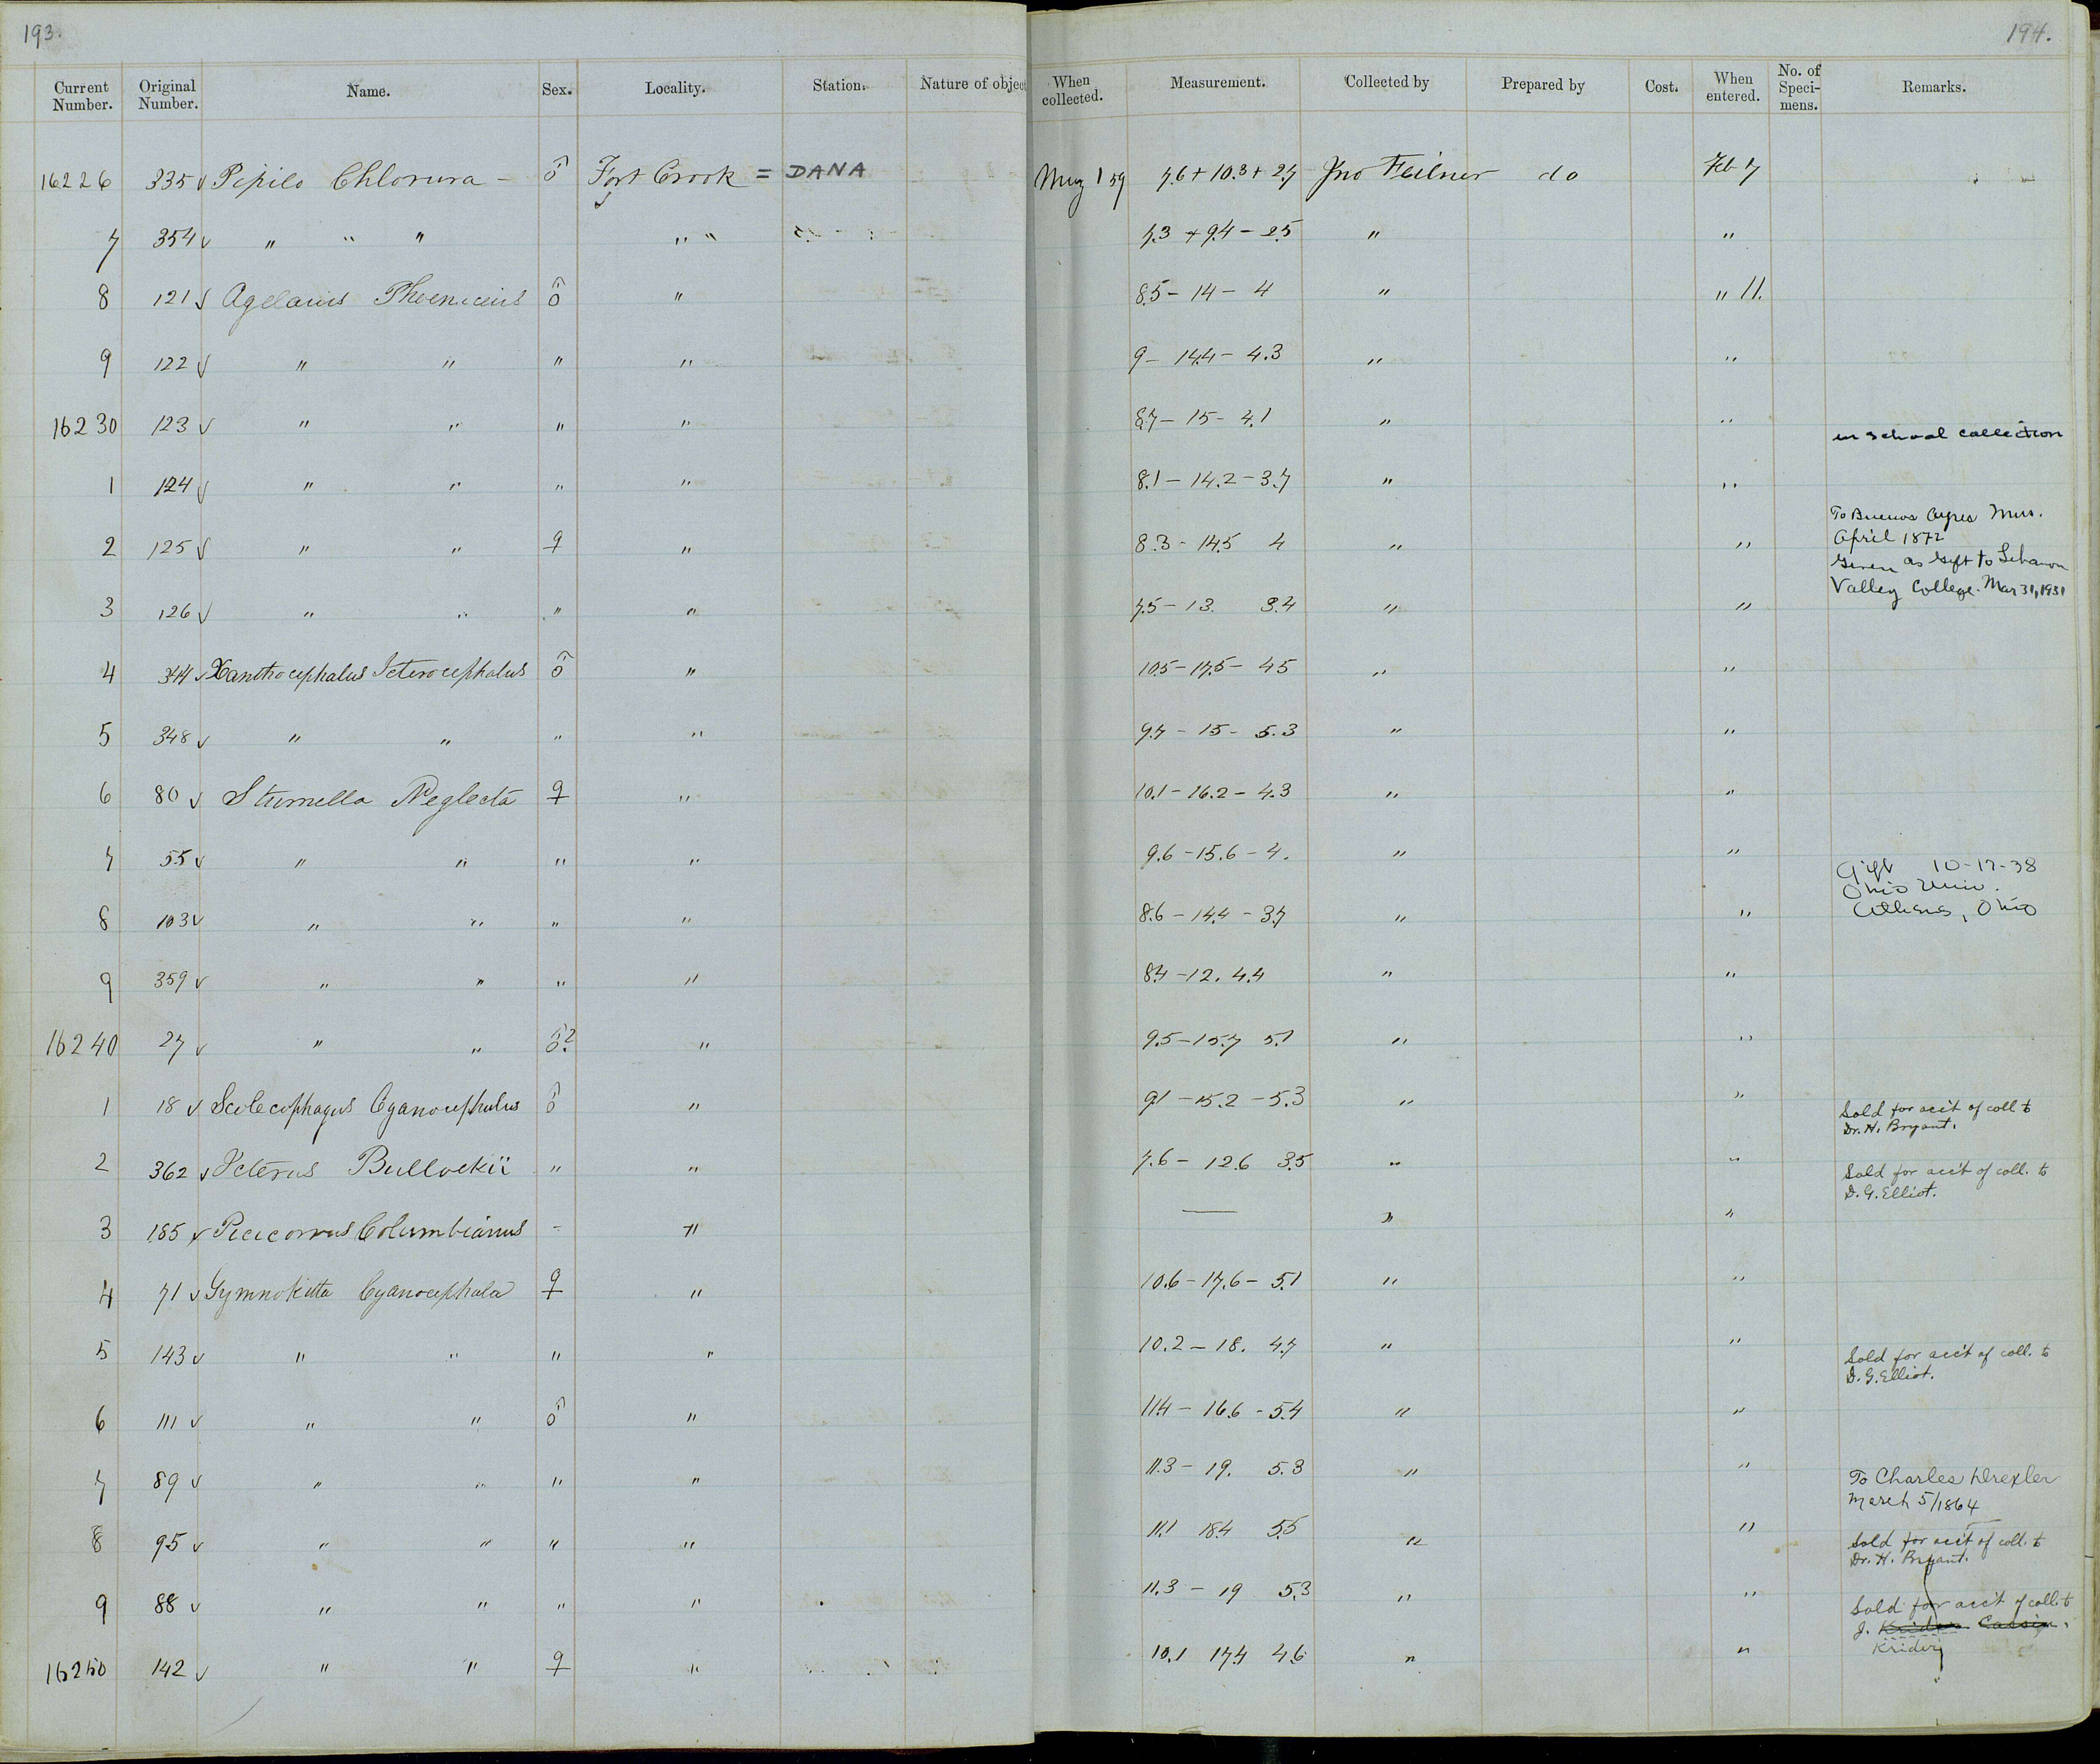 193.
194.
Current Number. Original Number. Name. Sex. Locality. Station. Nature of object When collected. Measurement. Collected by Prepared by Cost. When entered. No. of Speci-mens. Remarks.
16226 335 ✓ Pipilo Chlorura – ♂ Fort Crook = DANA May 1 59 7.6 + 10.3 + 2.7 Jno Feilner do Feb 7
7 354 ✓ " " " " " 7.3 + 9.4 – 2.5 " "
8 121 ✓ Agelaius Phoeniceus ♂ " 8.5 – 14 – 4 " " 11.
9 122 ✓ " " " " 9 – 14.4 – 4.3 " "
16230 123 ✓ " " " " 8.7 – 15 – 4.1 " " in school collection
1 124 ✓ " " " " 8.1 – 14.2 – 3.7 " "
2 125 ✓ " " ♀ " 8.3 – 14.5 4 " " To Buenos Ayres Mus. April 1872
3 126 ✓ " " " " 7.5 – 13. 3.4 " " Given as Gift to Lebanon Valley College. Mar 31, 1931
4 344 ✓ Xanthocephalus Icterocephalus ♂ " 10.5 – 17.5 – 4.5 " "
5 348 ✓ " " " " 9.7 – 15 – 5.3 " "
6 80 ✓ Sturnella Neglecta ♀ " 10.1 – 16.2 – 4.3 " "
7 55 ✓ " " " " 9.6 – 15.6 – 4. " "
8 103 ✓ " " " " 8.6 – 14.4 – 3.7 " " Gift 10-17-38 Ohio Univ. Athens, Ohio
9 359 ✓ " " " " 8.4 – 12. 4.4 " "
16240 27 ✓ " " ♂? " 9.5 – 15.7 5.1 " "
1 18 ✓ Scolecophagus Cyanocephalus ♂ " 9.1 – 15.2 – 5.3 " " Sold for acc't of coll. to Dr. H. Bryant.
2 362 ✓ Icterus Bullockii " " 7.6 – 12.6 3.5 " " Sold for acc't of coll. to D. G. Elliot.
3 185 ✓ Picicorvus Columbianus – " — " "
4 71 ✓ Gymnokitta Cyanocephala ♀ " 10.6 – 17.6 – 5.1 " "
5 143 ✓ " " " " 10.2 – 18. 4.7 " " Sold for acc't of coll. to D. G. Elliot.
6 111 ✓ " " ♂ " 11.4 – 16.6 – 5.4 " "
7 89 ✓ " " " " 11.3 – 19. 5.3 " " To Charles Drexler March 5/1864
8 95 ✓ " " " " 11.1 18.4 5.5 " " Sold for acc't of coll. to Dr. H. Bryant.
9 88 ✓ " " " " 11.3 – 19 5.3 " " Sold for acc't of coll. to J. Krider Cassin. Krider
16250 142 ✓ " " ♀ " 10.1 17.4 4.6 " "